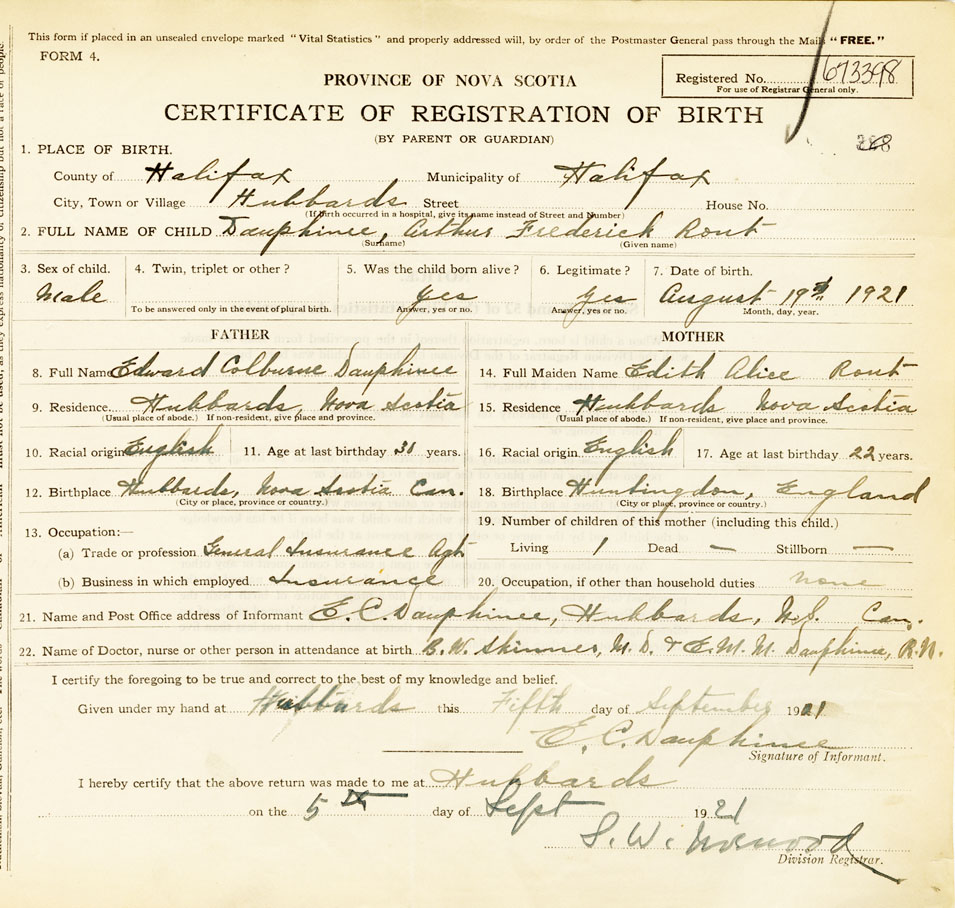 This form if placed in an unsealed envelope marked "Vital Statistics" and properly addressed will, by order of the Postmaster General pass through the Mails "FREE."
FORM 4.
Registered No. 673398
For use of Registrar General only.
PROVINCE OF NOVA SCOTIA
CERTIFICATE OF REGISTRATION OF BIRTH
(BY PARENT OR GUARDIAN)
1. PLACE OF BIRTH.
County of Halifax Municipality of Halifax
City, Town or Village Hubbards Street House No.
(If birth occurred in a hospital, give its name instead of Street and Number)
2. FULL NAME OF CHILD Dauphinee, Arthur Frederick Rout
(Surname) (Given name)
3. Sex of child. 4. Twin, triplet or other? 5. Was the child born alive? 6. Legitimate? 7. Date of birth.
Male Yes Yes August 19th 1921
To be answered only in the event of plural birth. Answer, yes or no. Answer, yes or no. Month, day, year.
FATHER MOTHER
8. Full Name Edward Colburne Dauphinee 14. Full Maiden Name Edith Alice Rout
9. Residence Hubbards, Nova Scotia 15. Residence Hubbards Nova Scotia
(Usual place of abode.) If non-resident, give place and province. (Usual place of abode.) If non-resident, give place and province.
10. Racial origin English 11. Age at last birthday 31 years. 16. Racial origin English 17. Age at last birthday 22 years.
12. Birthplace Hubbards, Nova Scotia Can. 18. Birthplace Huntingdon, England
(City or place, province or country.) (City or place, province or country.)
13. Occupation:— 19. Number of children of this mother (including this child.)
(a) Trade or profession General Insurance Agt Living 1 Dead — Stillborn —
(b) Business in which employed Insurance 20. Occupation, if other than household duties none
21. Name and Post Office address of Informant E. C. Dauphinee, Hubbards, N.S. Can.
22. Name of Doctor, nurse or other person in attendance at birth B. W. Skinner, M.D. & E. M. M. Dauphinee, R.N.
I certify the foregoing to be true and correct to the best of my knowledge and belief.
Given under my hand at Hubbards this Fifth day of September 1921
E. C. Dauphinee
Signature of Informant.
I hereby certify that the above return was made to me at Hubbards
on the 5th day of Sept 1921
S. W.
Division Registrar.